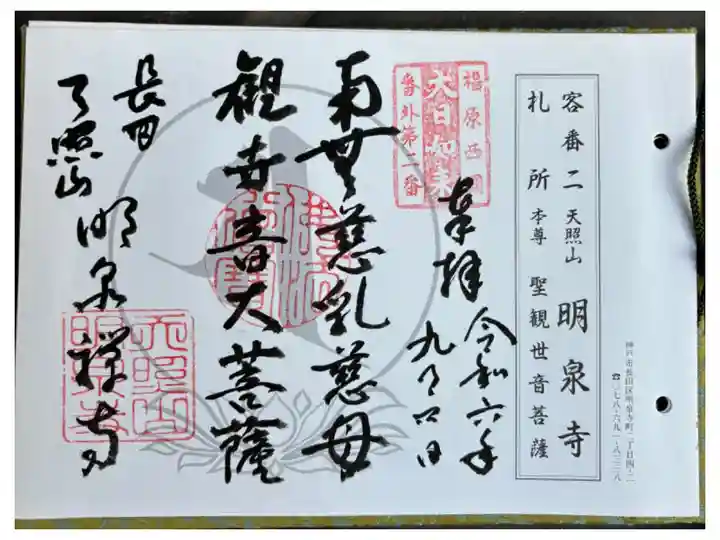 客番二 天照山 明泉寺
札所 本尊 聖観世音菩薩
神戸市長田区明泉寺町二丁目四-二
☎〇七八-六九一-八三二八
福原西国
大日如来
番外第二番
奉拝 令和六年
九月
南無慈乳慈母
観世音大菩薩
長田
天照山 明泉禅寺